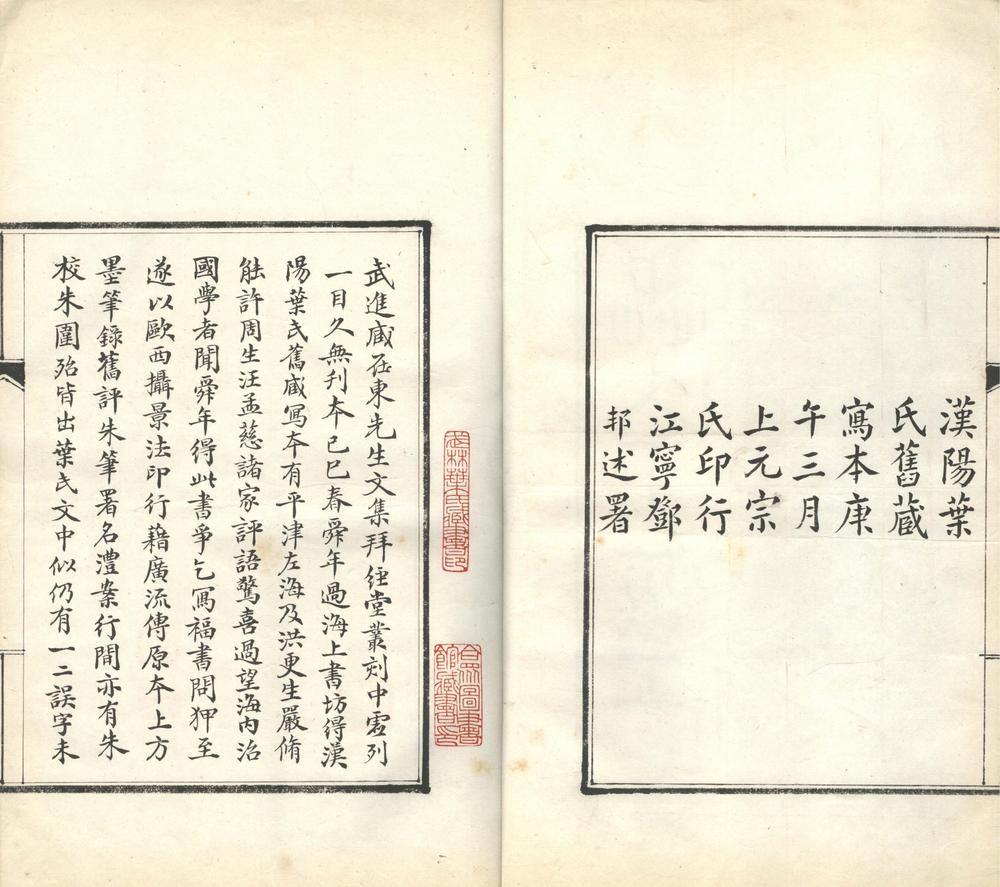 漢陽葉
氏舊藏
寫本庚
午三月
上元宗
氏印行
江寧鄧
邦述署
武進臧在東先生文集拜經堂叢刻中虛列
一目久無刋本己巳春舜年過海上書坊得漢
陽葉氏舊臧寫本有平津左海及洪更生嚴脩
能許周生汪孟慈諸家評語驚喜過望海內治
國學者聞舜年得此書爭乞寫福書問狎至
遂以歐西攝景法印行藉廣流傳原本上方
墨筆錄舊評朱筆署名澧案行間亦有朱
校朱圍殆皆出葉氏文中似仍有一二誤字未
武林葉氏藏書印
合眾圖書館藏書印